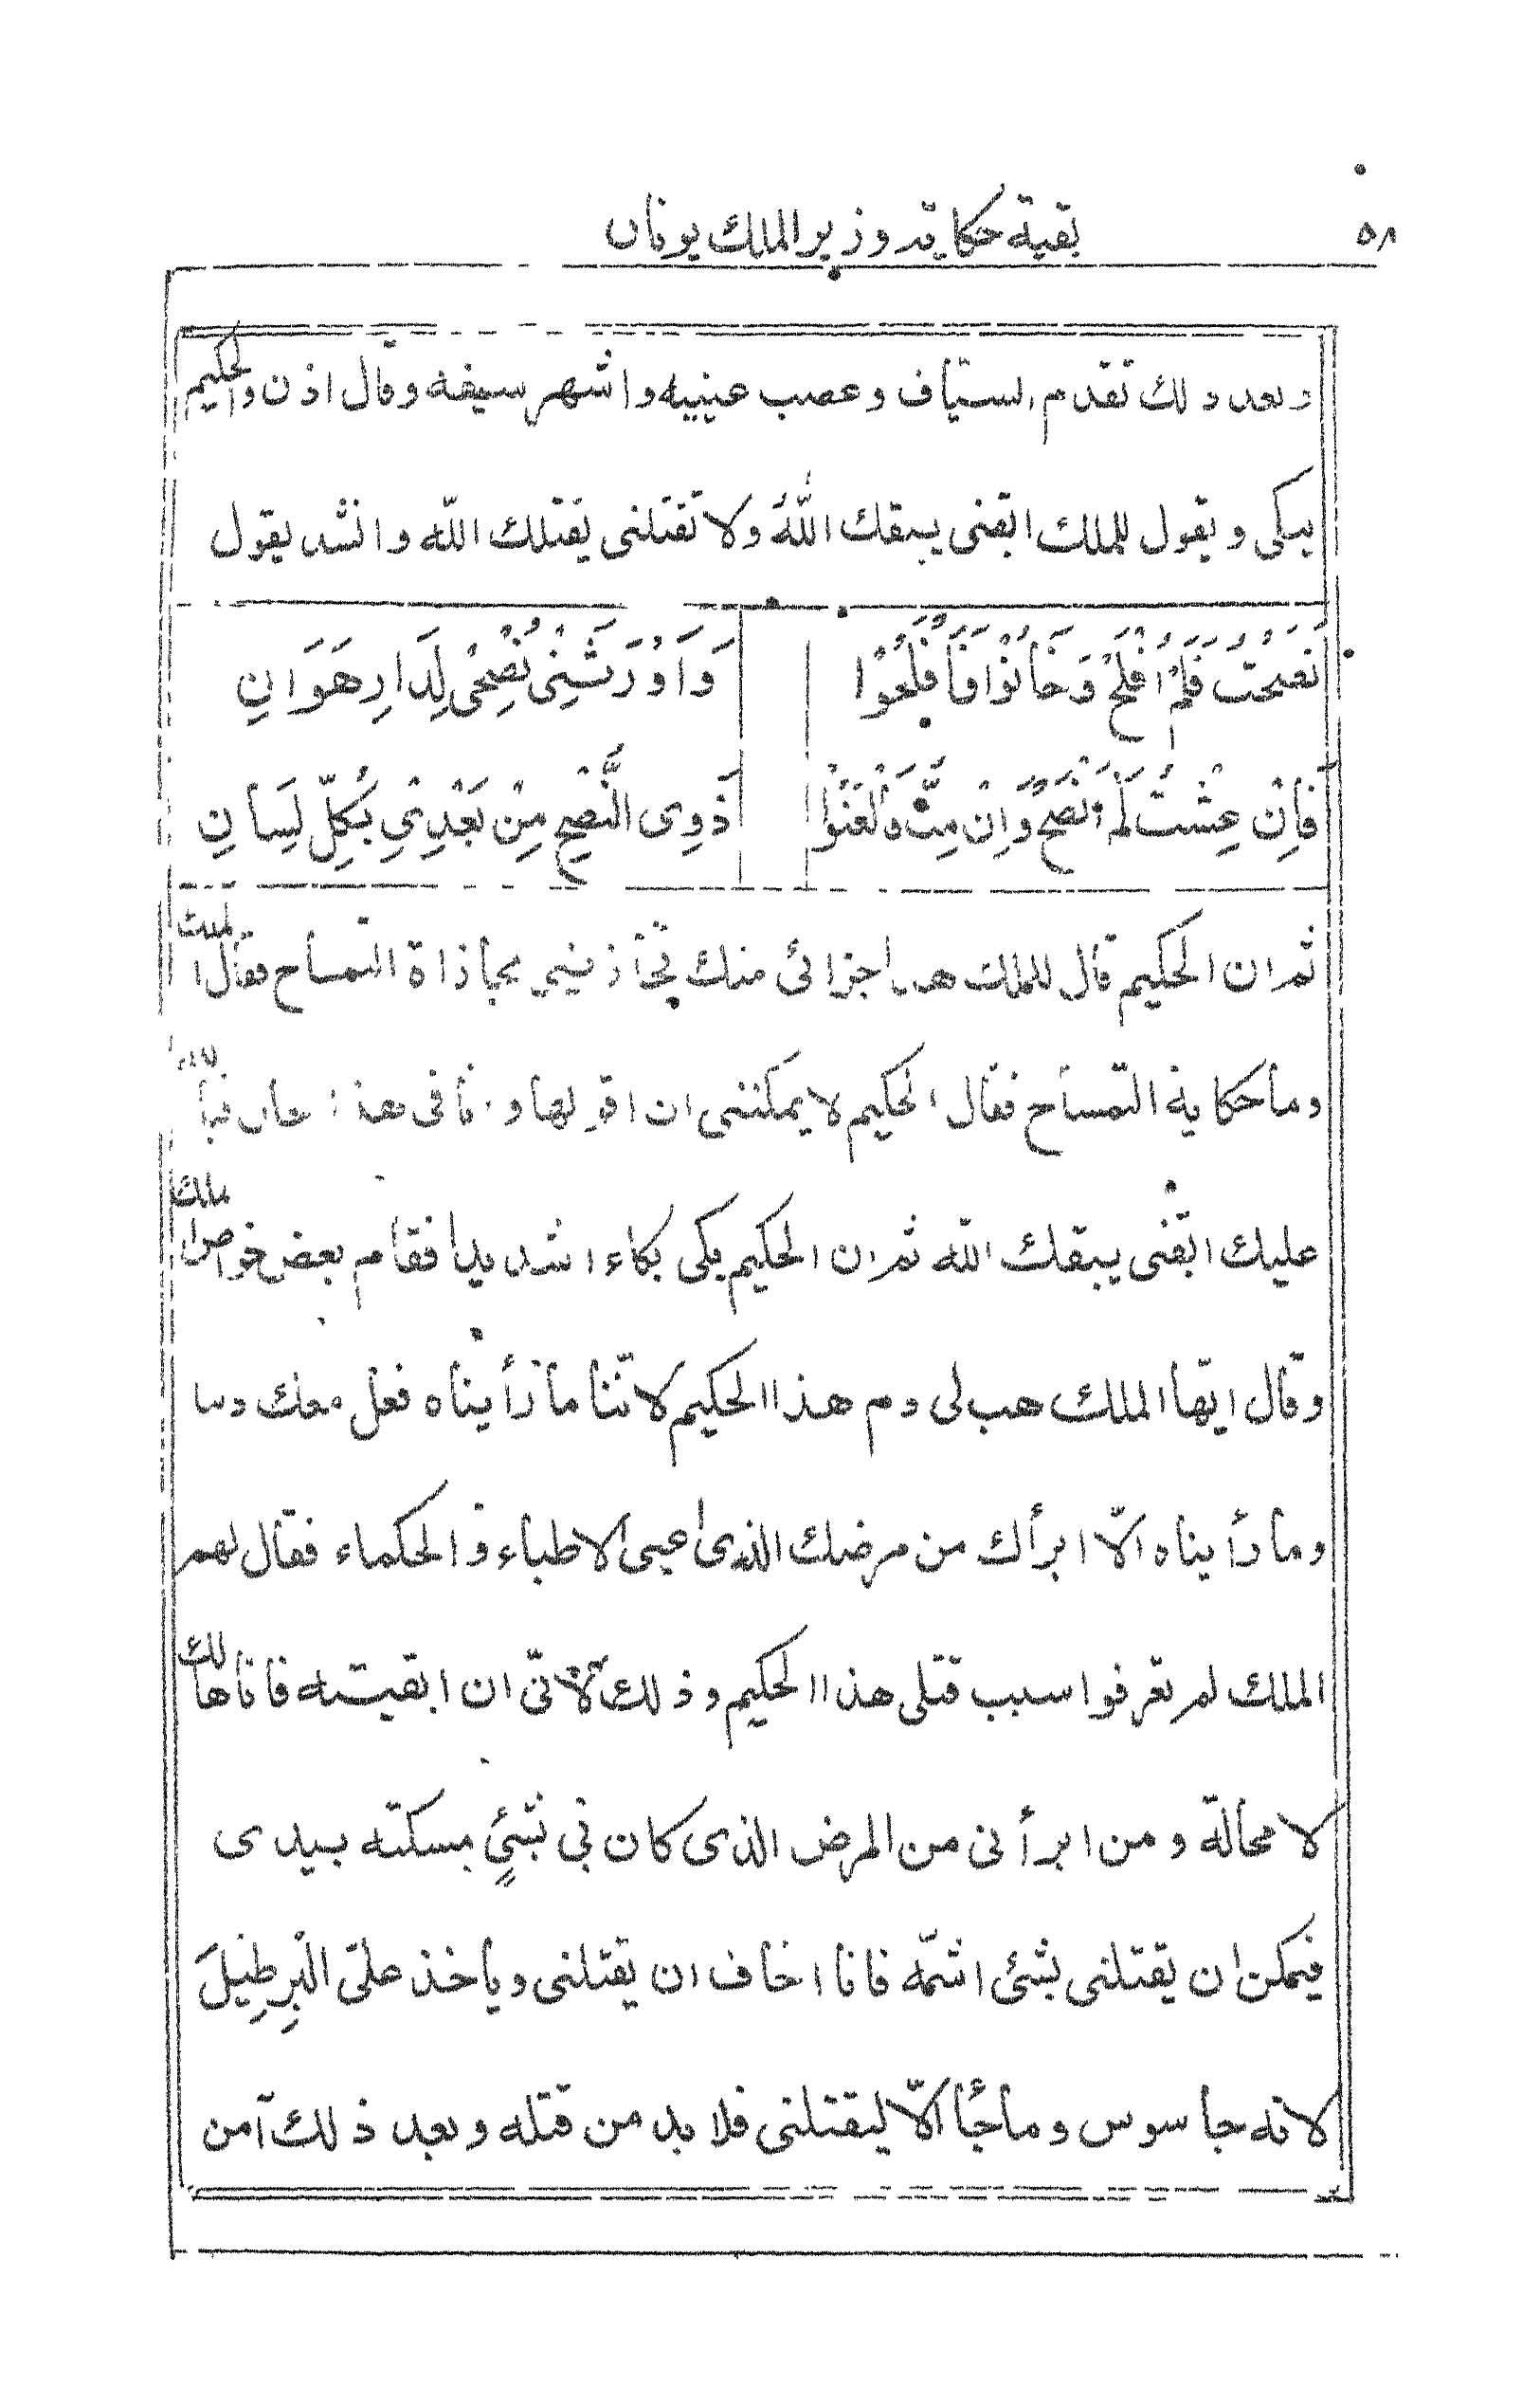 ٥٨
بقية حكاية وزير الملك يونان
وبعد ذلك تقدم السيّاف وعصب عينيه واشهر سيفه وقال اذن والحكيم
يبكى ويقول للملك ابقنى يبقك اللهُ ولا تقتلنى يقتلك اللّه وانشد يقول
نَصَحْتُ فَلَمْ اُفْلَحْ وَخَانُوْا فَأَفْلَحُوْا وَاَوْرَثَنِىْ نُصْحِىْ لِدَارِ هَوَانِ
فَاِنْ عِشْتُ لَمْ اَنْصَحْ وَاِنْ مِتُّ فَالْعَنُوْا ذَوِى النُّصْحِ مِنْ بَعْدِىْ بِكُلِّ لِسَانِ
ثم ان الحكيم قال للملك هذا جزائى منك تجازينى مجازاة التمساح فقال الملك
وما حكاية التمساح فقال الحكيم لا يمكننى ان اقولها وانا فى هذا الحال فبا
عليك ابقنى يبقك اللّه ثم ان الحكيم بكى بكاء اشديدا فقام بعض خواص الملك
وقال ايّها الملك هب لى دم هذا الحكيم لاننّا ما رأيناه فعل معك
وما رأيناه الّا ابرأك من مرضك الذى اعيى الاطباء والحكماء فقال لهم
الملك لم تعرفوا سبب قتلى هذا الحكيم وذلك لانّى ان ابقيته فانا هالك
لا محالة ومن ابرأنى من المرض الذى كان بى بشئٍ مسكته بيدى
فيمكن ان يقتلنى بشئ اشمّه فانا اخاف ان يقتلنى وياخذ علىّ البِرطِيلَ
لانه جاسوس وما جأ الّا ليقتلنى فلا بد من قتله وبعد ذلك آمن